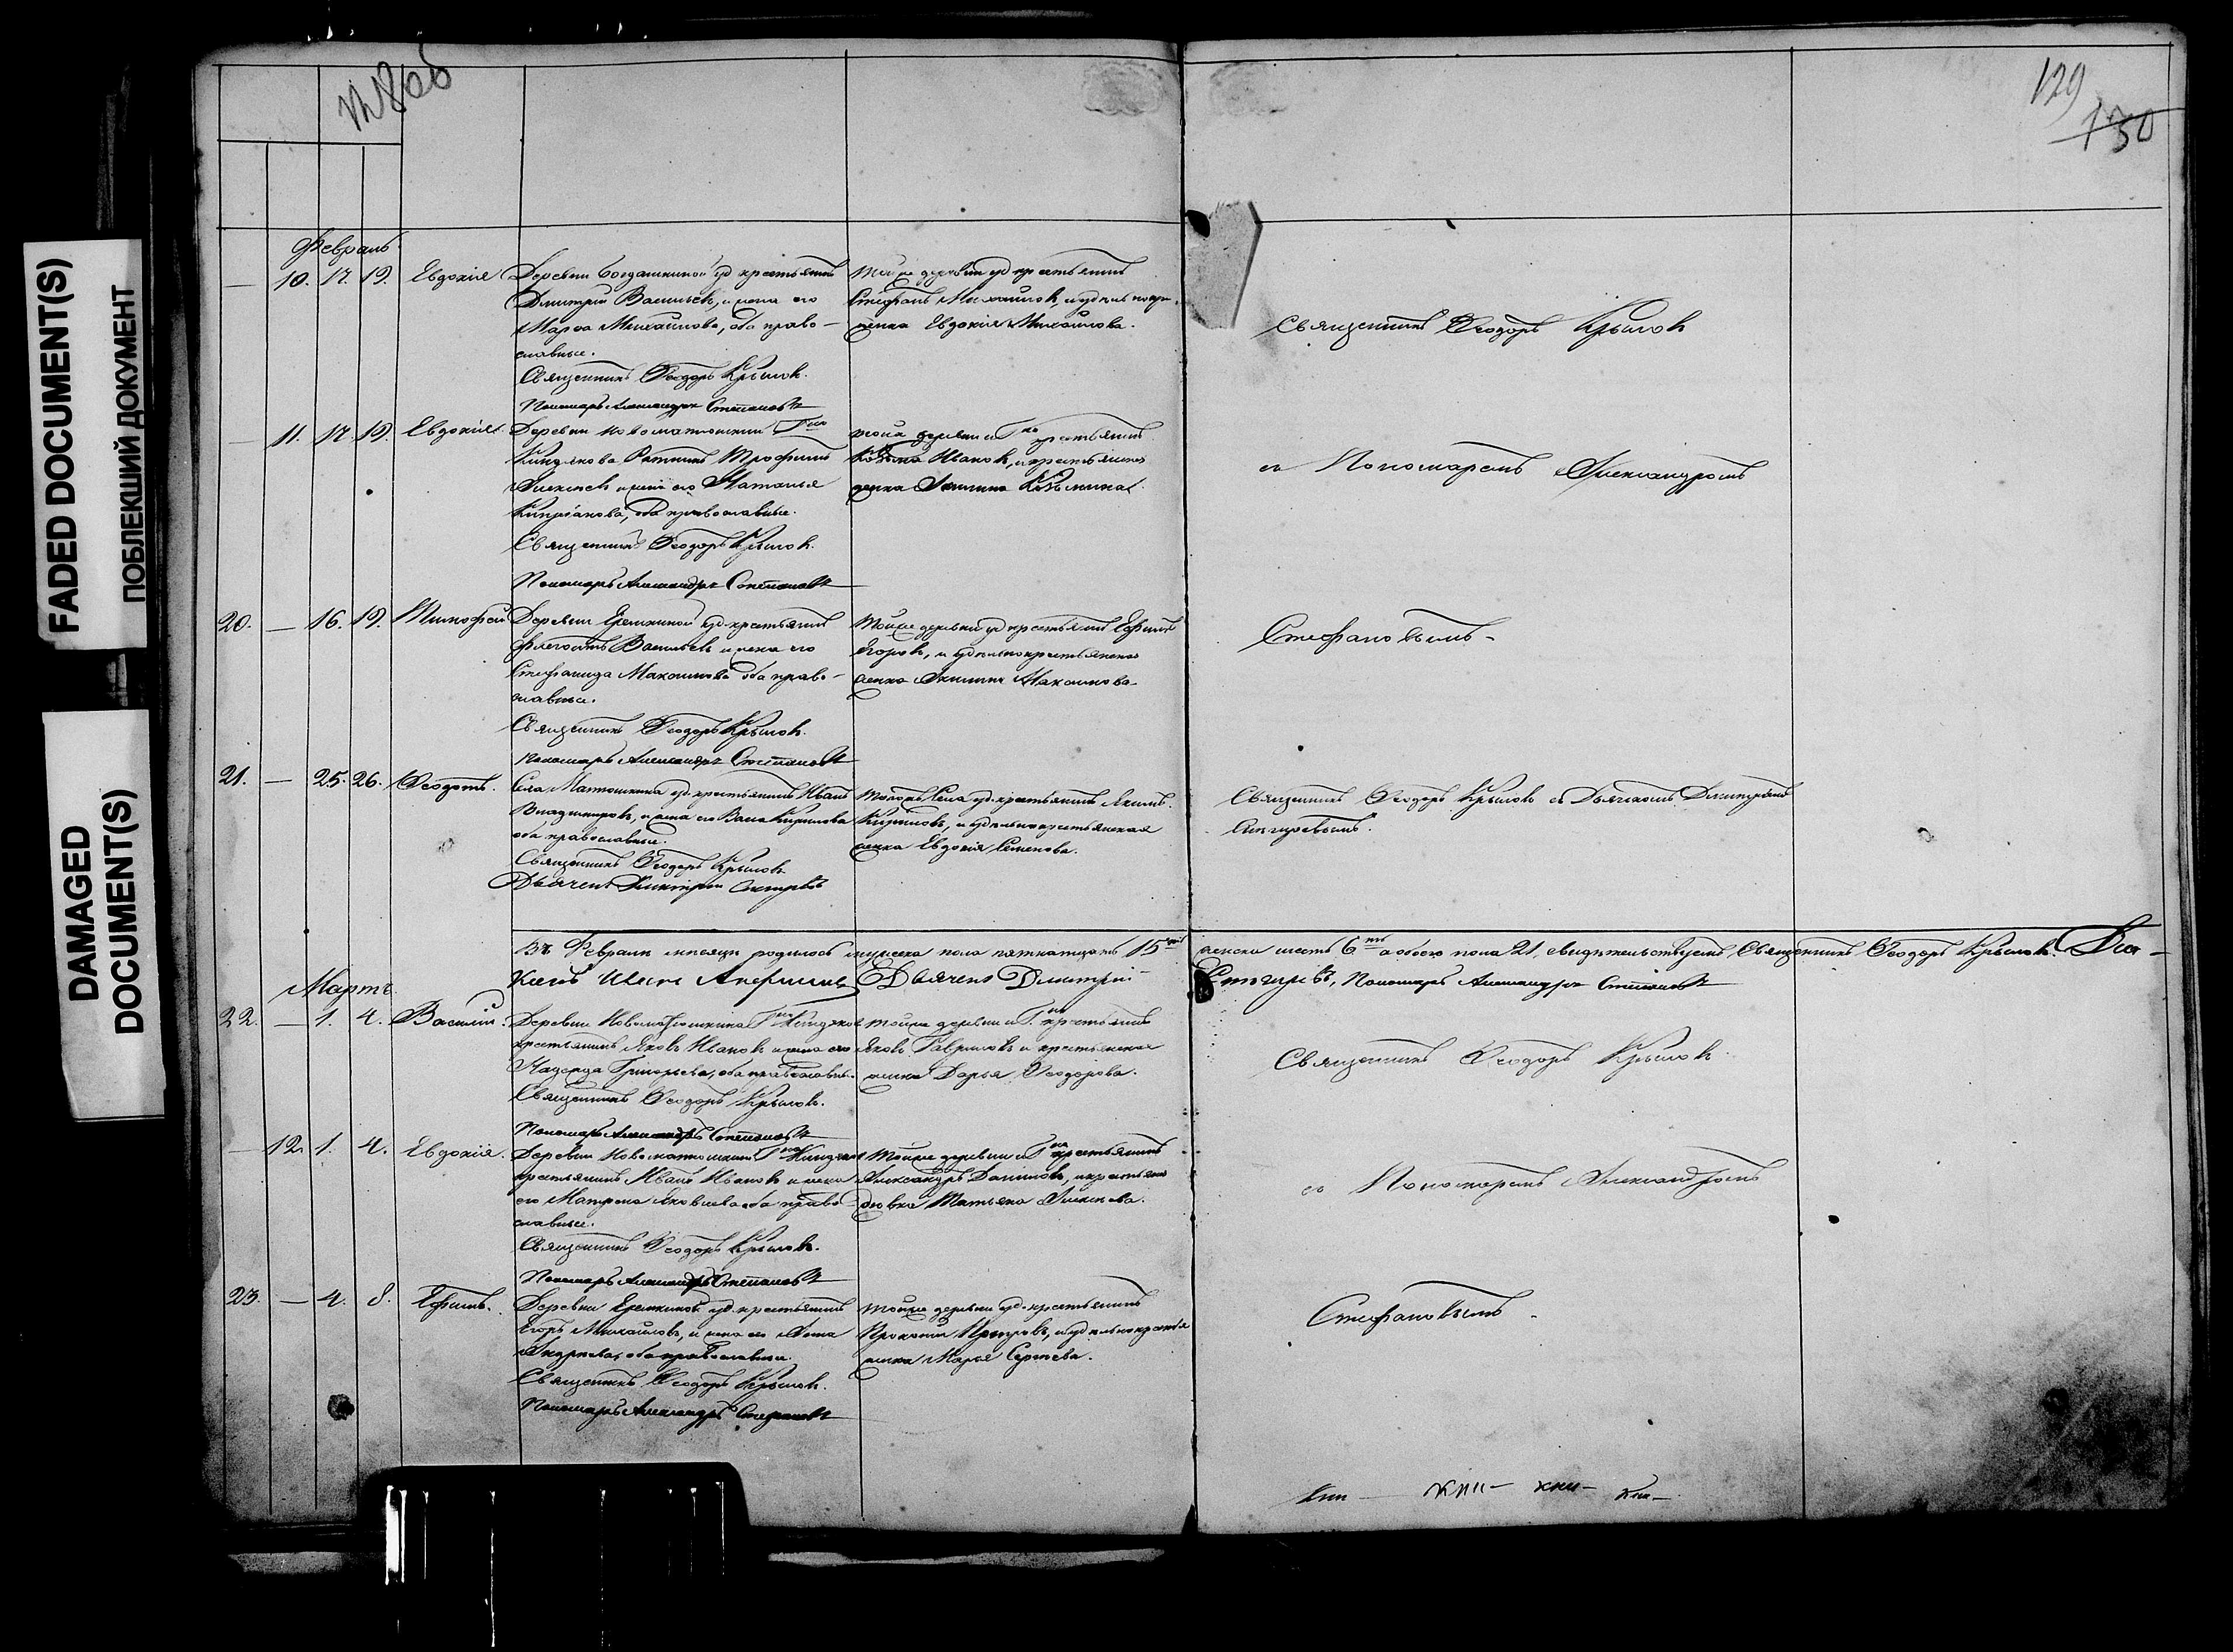 FADED DOCUMENT(S)
ПОБЛЕКШИЙ ДОКУМЕНТ
DAMAGED
DOCUMENT(S)
129
130
Февраль
— 10. 17. 19. Евдокія
Деревни Богдашкиной уд. крестьянинъ
Димитрій Васильевъ, и жена его
Марѳа Михайлова, оба право-
славные.
Священникъ Ѳеодоръ Крыловъ.
Пономарь Александръ Стефановъ
Тойже деревни уд. крестьянинъ
Стефанъ Михайловъ, и удельнокре-
женка Евдокія Михайлова.
Священникъ Ѳеодоръ Крыловъ
— 11. 17. 19. Евдокія.
Деревни Новоматюшкиной Гна
Киндякова Трофимъ
Алексеевъ и жена его Наталья
Кипріанова, оба православные.
Священникъ Ѳеодоръ Крыловъ.
Пономарь Александръ Стефановъ
тойже деревни и Гна крестьянинъ
Козьма Ивановъ, и крестьянская
девка Акилина Козьмина.
съ Пономаремъ Александромъ
20. — 16. 19. Тимофей
Деревни Еремкиной уд. крестьянинъ
Васильевъ и жена его
Стефанида Максимова оба право-
славные.
Священникъ Ѳеодоръ Крыловъ.
Пономарь Александръ Стефановъ
Тойже деревни уд. крестьянинъ Ефимъ
Егоровъ, и удельнокрестьянская
женка Акилина Максимова
Стефановымъ.
21. — 25. 26. Ѳеодотъ.
Села Матюшкина уд. крестьянинъ Иванъ
Владимировъ, и жена его Васса Кирилова
оба православные.
Священникъ Ѳеодоръ Крыловъ
Дьячекъ Димитрий Снегиревъ
Тогожъ Села уд. крестьянинъ Якимъ
Кириловъ, и удельнокрестьянская
женка Евдокія Семенова.
Священникъ Ѳеодоръ Крыловъ съ Дьячкомъ Димитріемъ
Снегиревымъ.
Въ Февралѣ месяце родилось мужеска пола пятнатцать 15ть женска шесть 6ть а обоего пола 21, свидетельствуемъ Священникъ Ѳеодоръ Крыловъ. Дiа-
конъ Иванъ Дьячекъ Димитрій Снегиревъ, Пономарь Александръ Стефановъ
Мартъ
22. — 1. 4. Василій.
Деревни Новоматюшкина Гна Киндякова
крестьянинъ Яковъ Ивановъ и жена его
Надежда Григорьева, оба православные.
Священникъ Ѳеодоръ Крыловъ.
Пономарь Александръ Стефановъ
тойже деревни и Гна крестьянинъ
Яковъ Гавриловъ и крестьянская
женка Дарья Ѳеодорова.
Священникъ Ѳеодоръ Крыловъ
— 12. 1. 4. Евдокія.
Деревни Новоматюшкиной Гна Киндякова
крестьянинъ Иванъ Ивановъ и жена
его Матрона Яковлева оба право-
славные.
Священникъ Ѳеодоръ Крыловъ.
Пономарь Александръ Стефановъ
Тойже деревни и Гна крестьянинъ
Александръ Даниловъ, и крестьянс
девка Татьяна Алексеева.
съ Пономаремъ Александромъ
23. — 4. 8. Ефимъ.
Деревни Еремкиной уд. крестьянинъ
Егоръ Михайловъ, и жена его Анна
Андреева, оба православные.
Священникъ Ѳеодоръ Крыловъ.
Пономарь Александръ Стефановъ
тойже деревни уд. крестьянинъ
Прокопій Петровъ, и удельнокрестья
женка Марья Сергеева.
Стефановымъ.